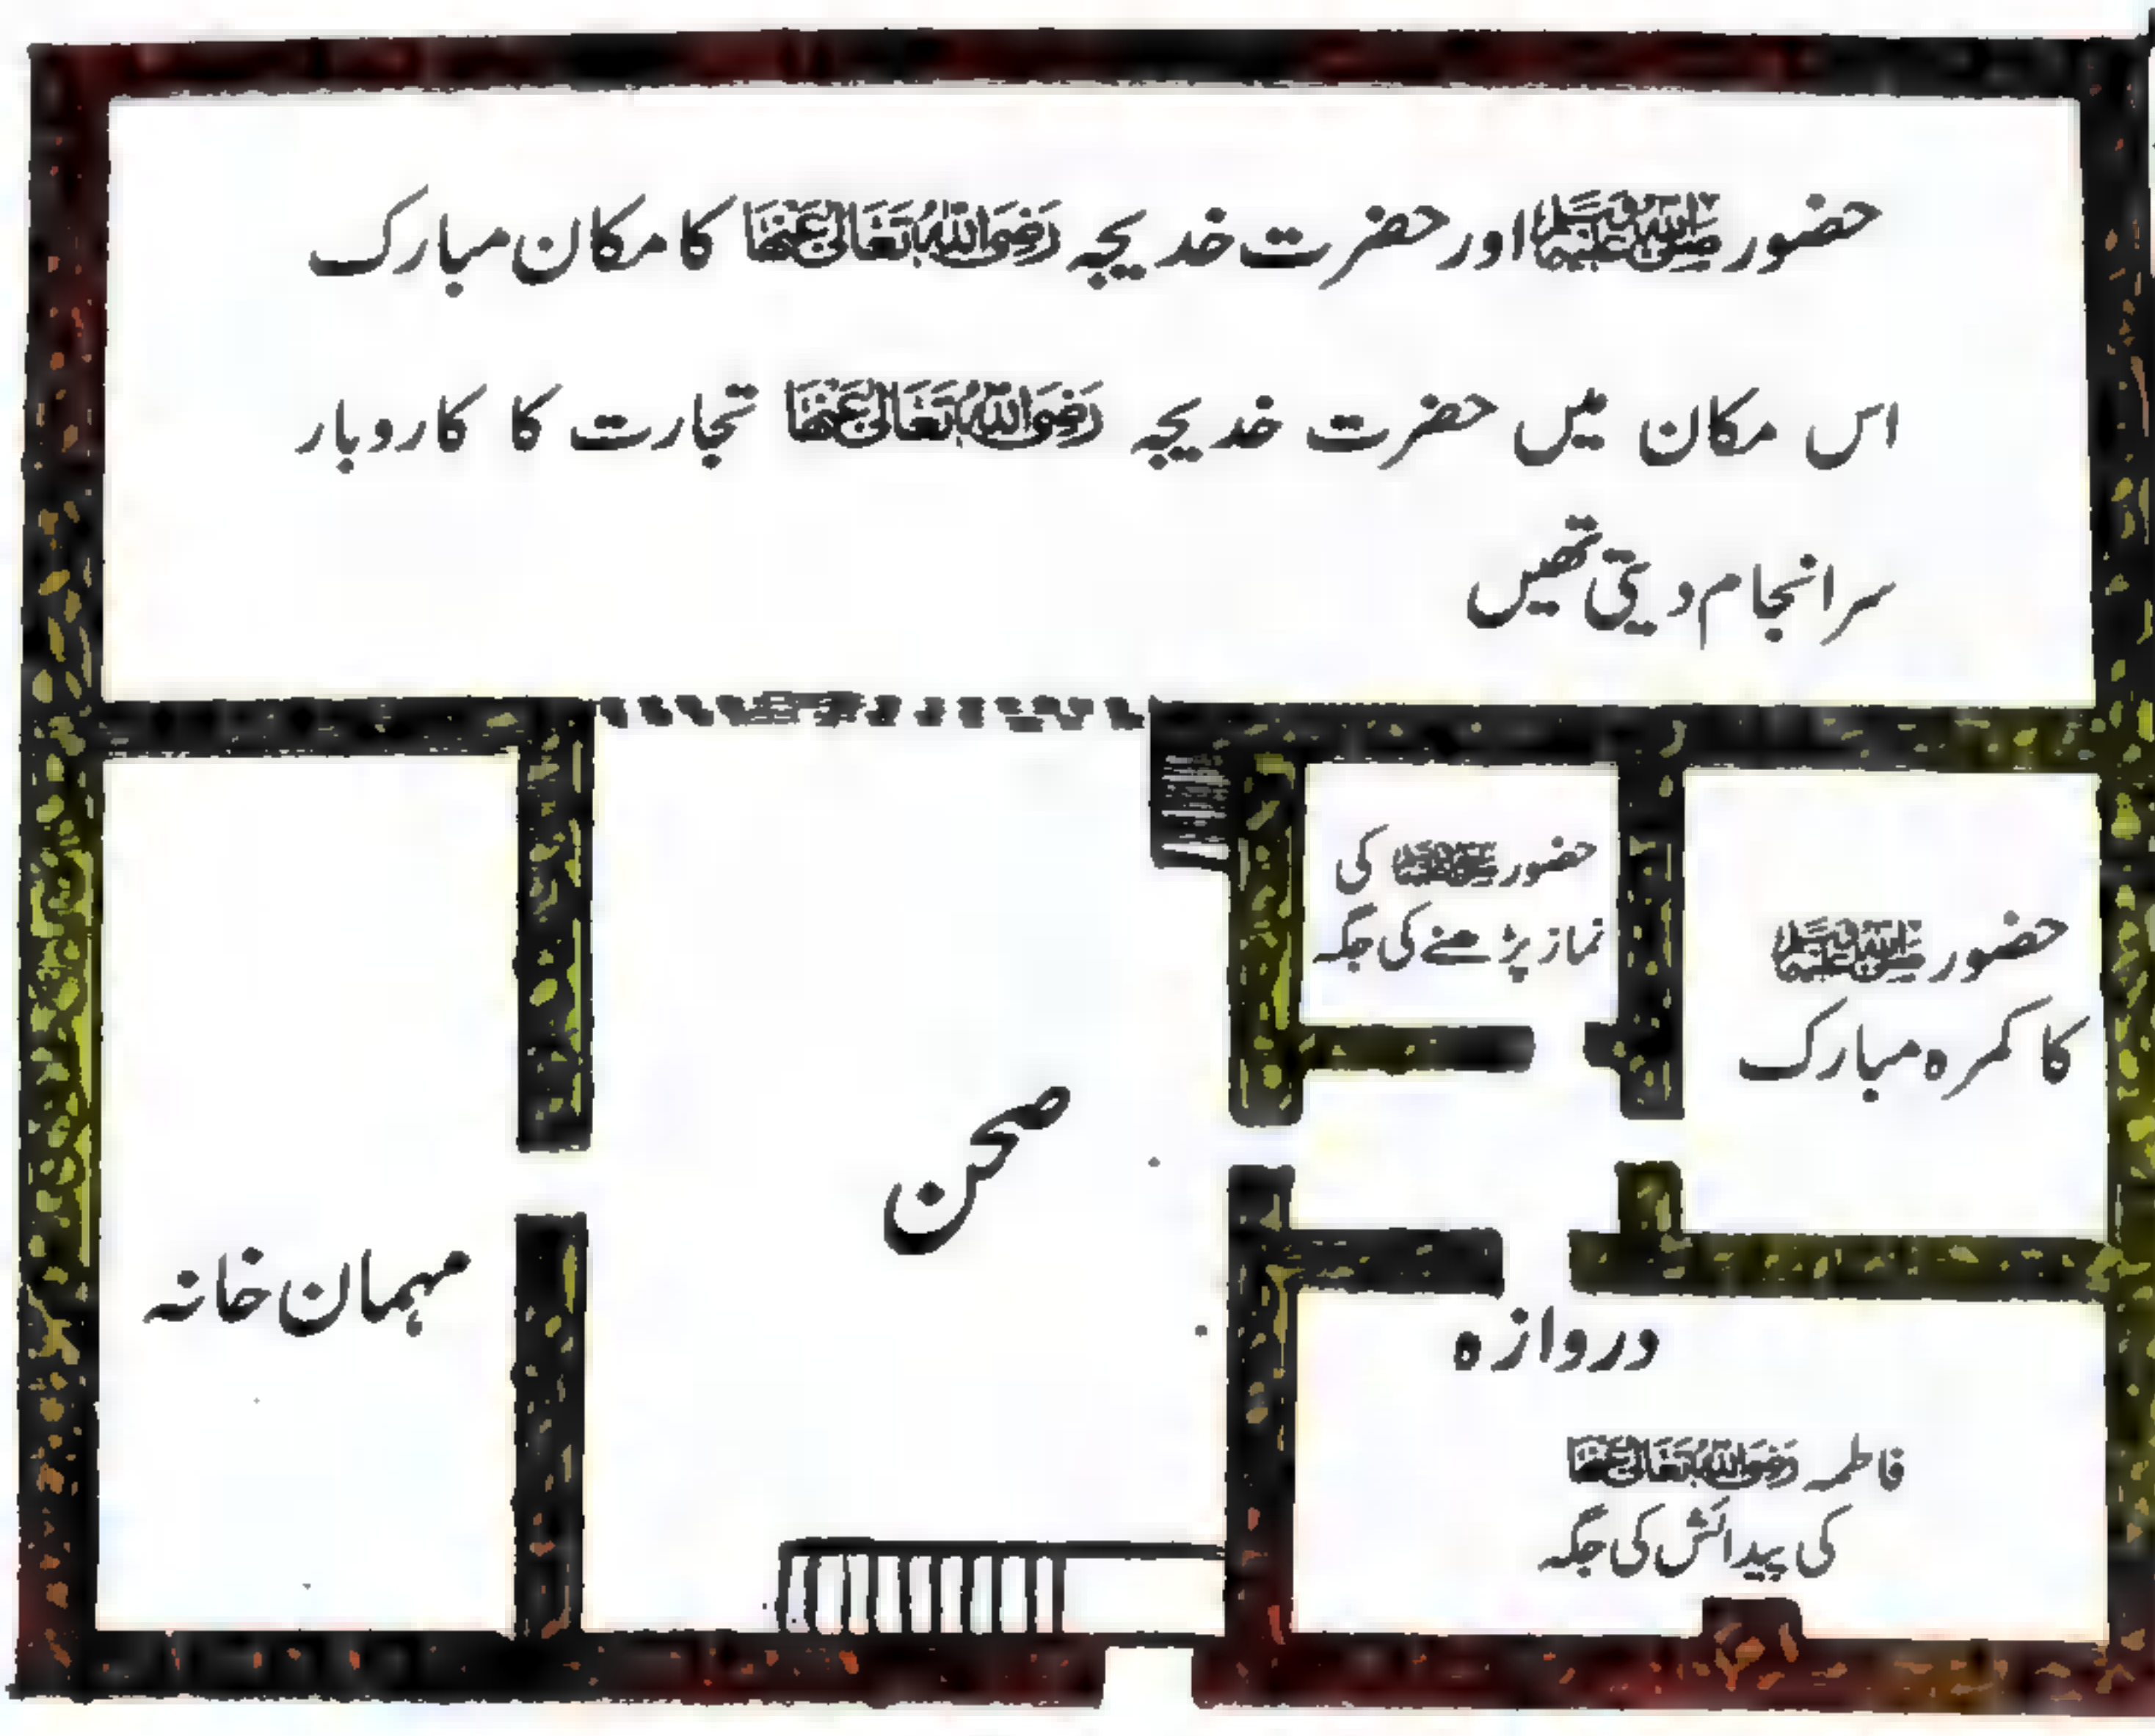 حضور ﷺ اور حضرت خدیجہ رَضِیَ اللہُ تَعَالٰی عَنْہَا کا مکان مبارک
اس مکان میں حضرت خدیجہ رَضِیَ اللہُ تَعَالٰی عَنْہَا تجارت کا کاروبار
سرانجام دیتی تھیں
حضور ﷺ کی
نماز پڑھنے کی جگہ
حضور ﷺ
کا کمرہ مبارک
صحن
مہمان خانہ
دروازہ
فاطمہ رَضِیَ اللہُ تَعَالٰی عَنْہَا
کی پیدائش کی جگہ